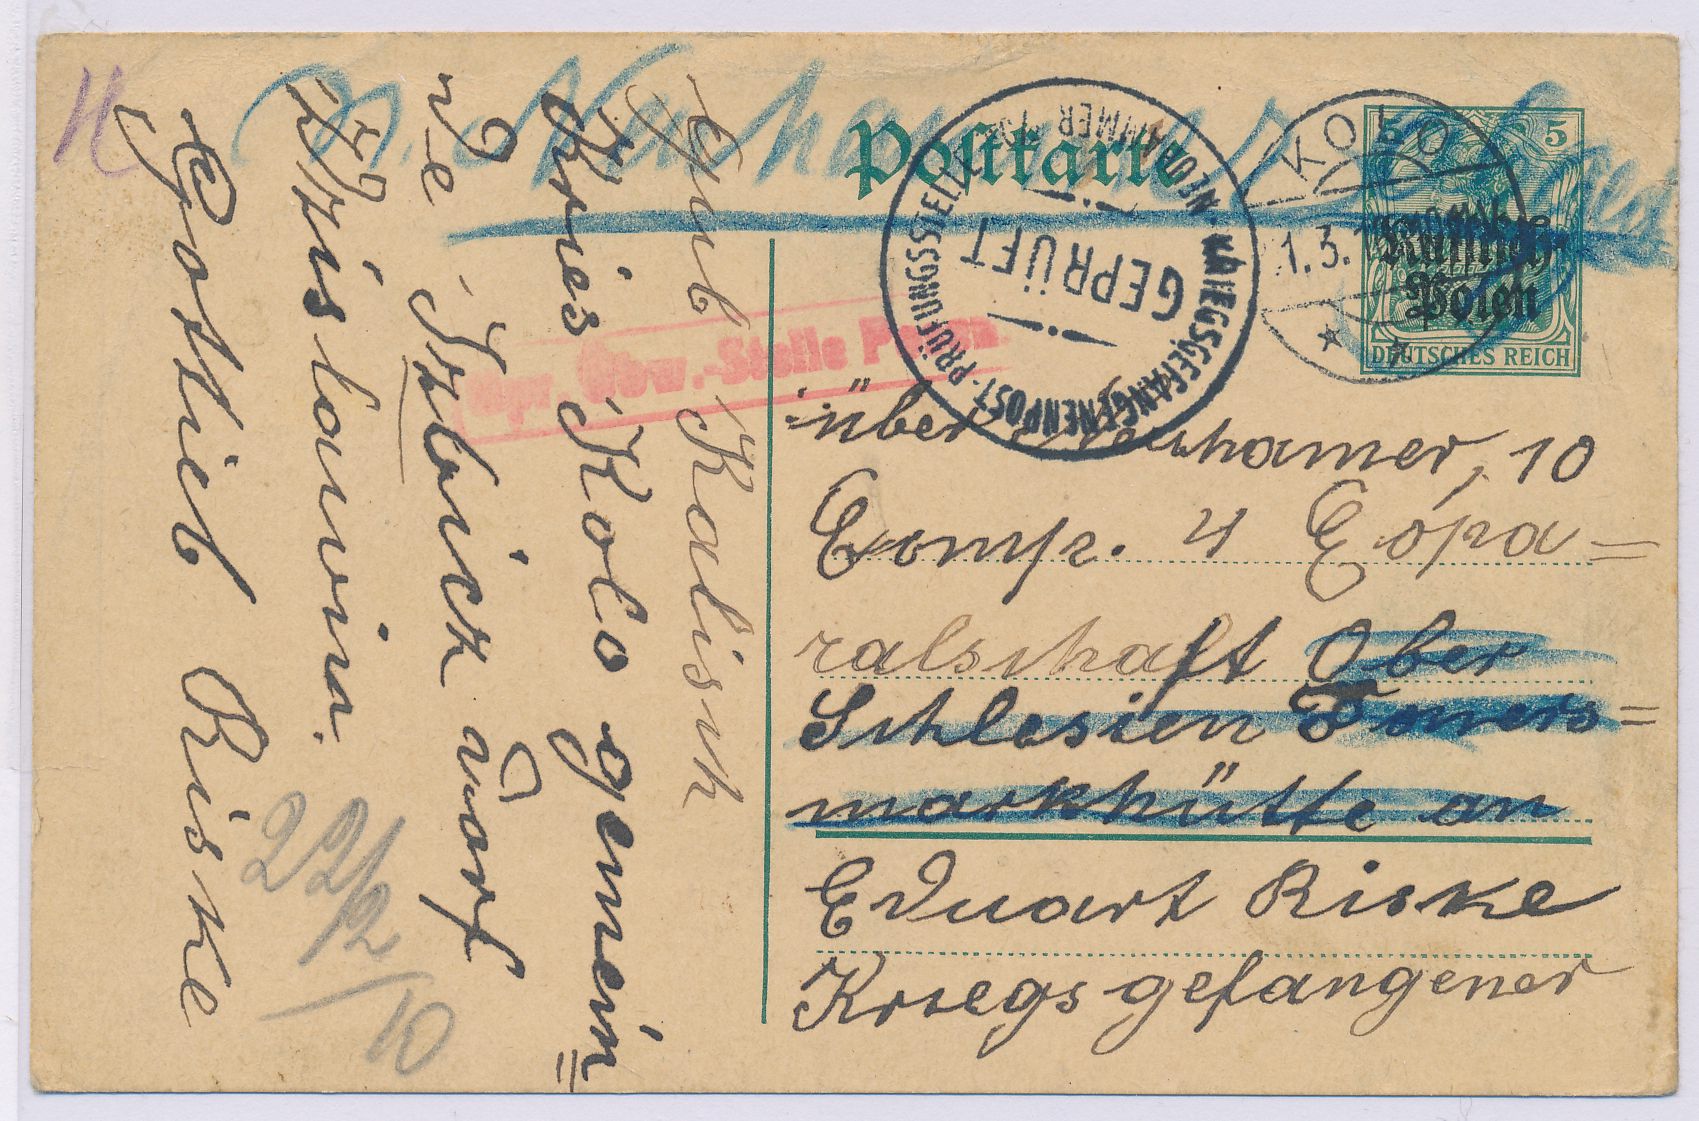 Postkarte
5 5
Russisch-
Polen
DEUTSCHES REICH
KOLO
1.3.
KRIEGSGEFANGENENPOST-PRÜFUNGSSTELLE
GEPRÜFT
NEUHAMMER
Stelle Posen
über Neuhamer, 10
Comp. 4 Cópa=
ralschaft Ober
Schlesien Doners=
markhütte an
Eduart Riske
Kriegsgefangener
Gub Kalisch
Kries Kolo gemein
de Izbick dorf
Zdzislawin.
Gottlieb Riske
22/2
10